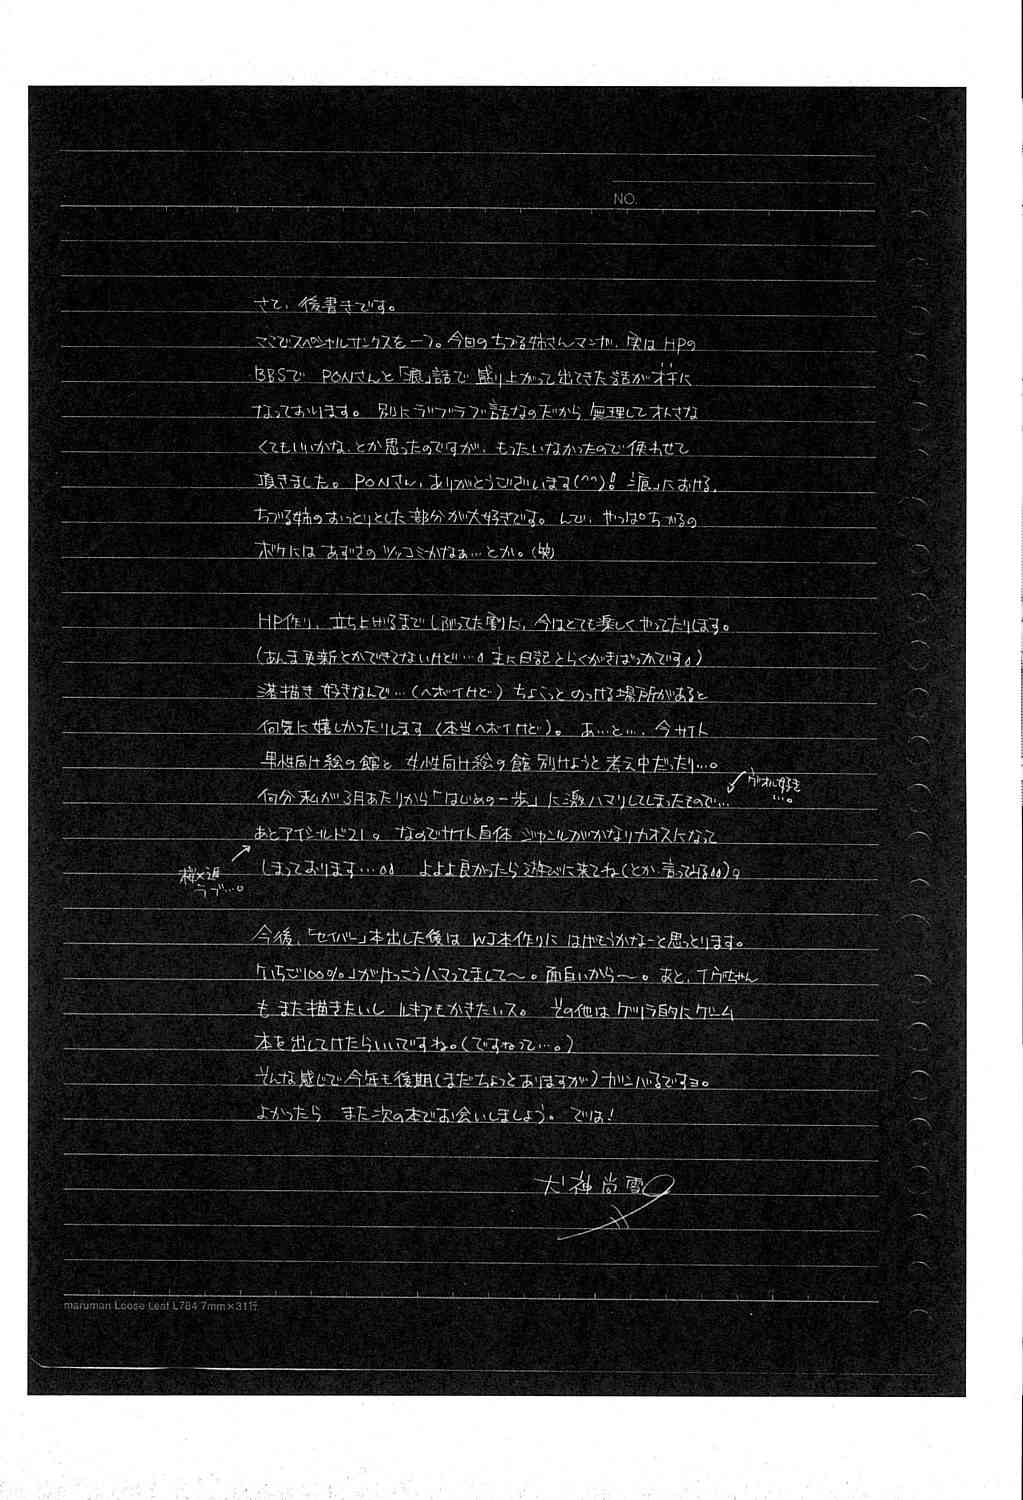 NO.
さて、後書きです。
ここでスペシャルサンクスを一つ。今回のちづる姉さんマンガ、実はHPの
BBSで PONさんと「痕」話で盛り上がって出てきた話がオチに
なっております。別にラブラブ話なのだから 無理してオトさな
くてもいいかな、とか思ったのですが、もったいなかったので使わせて
頂きました。PONさん、ありがとうございます(^^)!「痕」における、
ちづる姉のおっとりとした部分が大好きです。んで、やっぱちづるの
ボケには あずさのツッコミかなぁ…とか。(笑)
HP作り、立ち上げるまでしぶってた割に、今はとても楽しくやってたりします。
(あんま更新とかできてないけど…。主に日記とらくがきばっかです。)
落描き好きなんで…(ヘボイけど)ちょこっとのっける場所があると
何気に嬉しかったりします(本当ヘボイけど)。 あ…と…、今サイト
男性向け絵の館と 女性向け絵の館 別けようと考え中だったり…。
何分私が3月あたりから「はじめの一歩」に激ハマリしてしまったもので…
ヴォルグ好き
…。
あとアイシールド21。 なのでサイト自体 ジャンルがかなりカオスになって
しまっております… よよよ良かったら遊びに来てね(とか言ってみる)。
ラブ…。
今後、「セイバー」本出した後は WJ本作りに はげもうかなーと思っとります。
「いちご100%」がけっこうハマってまして〜。面白いから〜。あと、イヴちゃん
も また描きたいし ルキアもかきたいス。 その他は ゲリラ的にゲーム
本を出してけたらいいですね。(ですねって…。)
そんな感じで今年も後期(まだちょっとありますが)ガンバるですヨ。
よかったら また次の本でお会いしましょう。では!
犬神尚雪
maruman Loose Leaf L784 7mm×31行